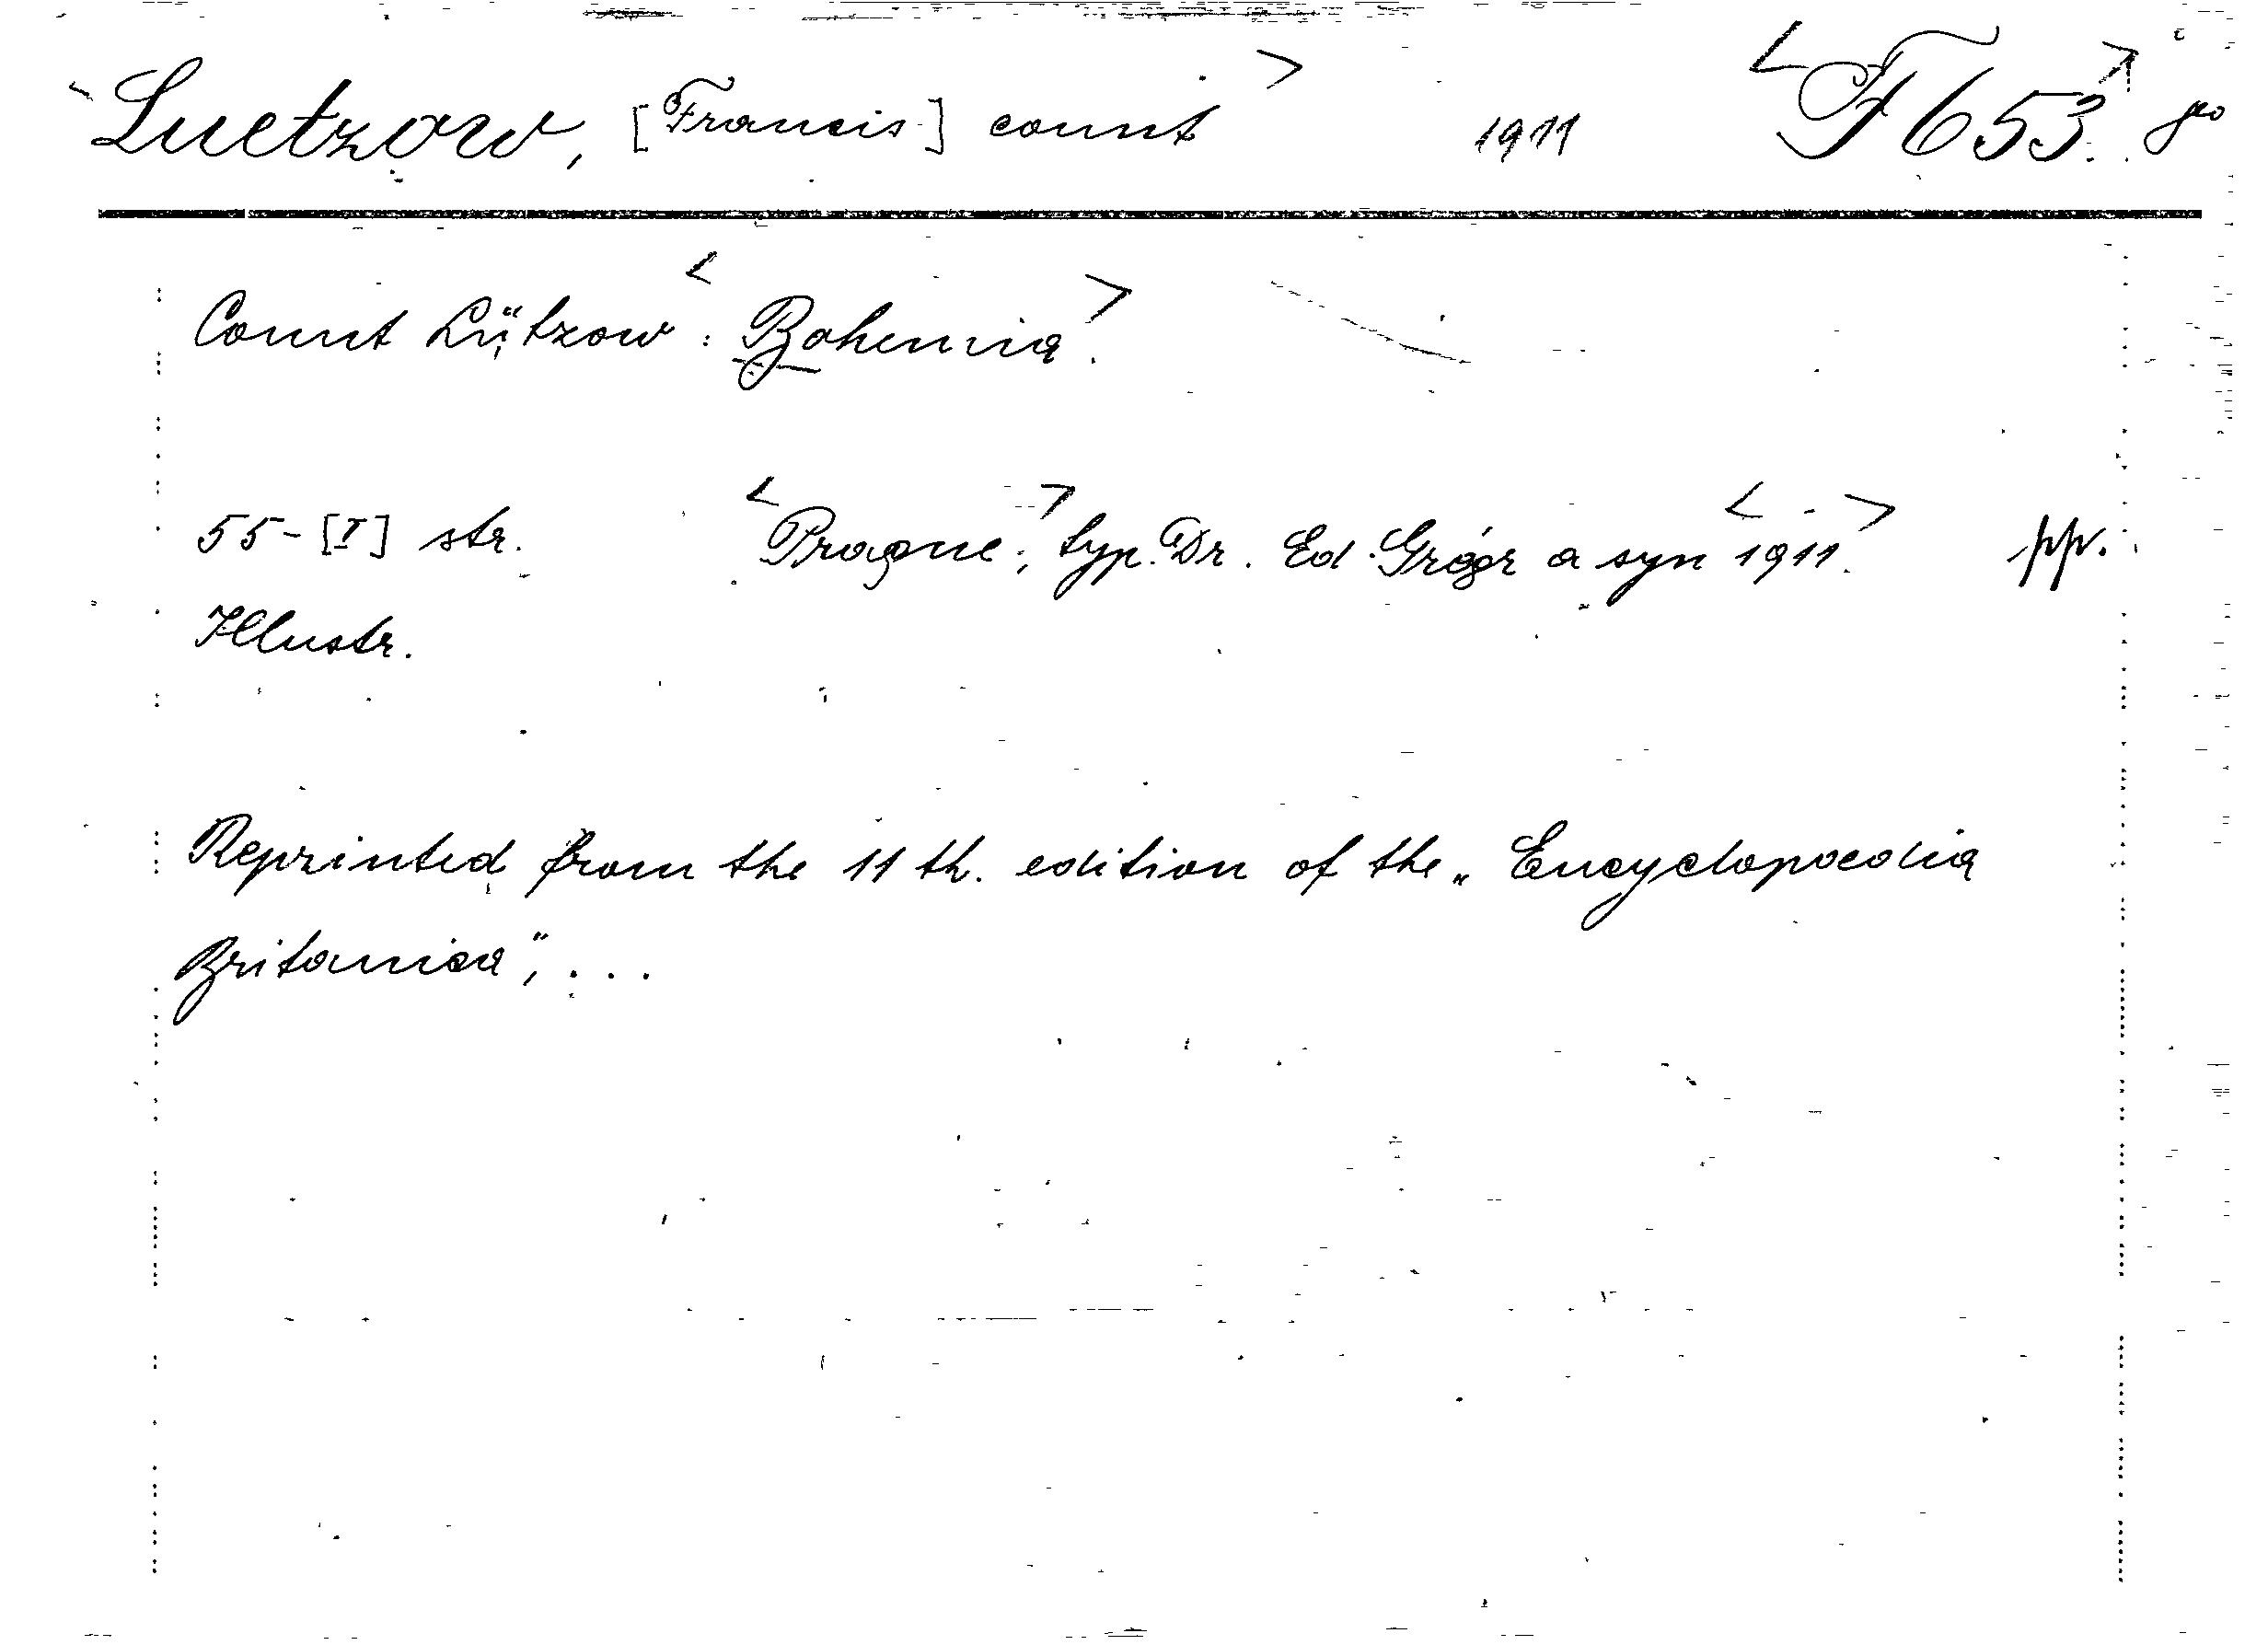 <Luetzow, [Francis] count> 1911 <F 653.>
Count Lützow: <Bohemia.>
55-[I] str. <Prague,> typ. Dr. Ed. Grégr a syn <1911.> pp.
Illustr.
Reprinted from the 11 th. edition of the „Encyclopoedia
Britanica“, ...